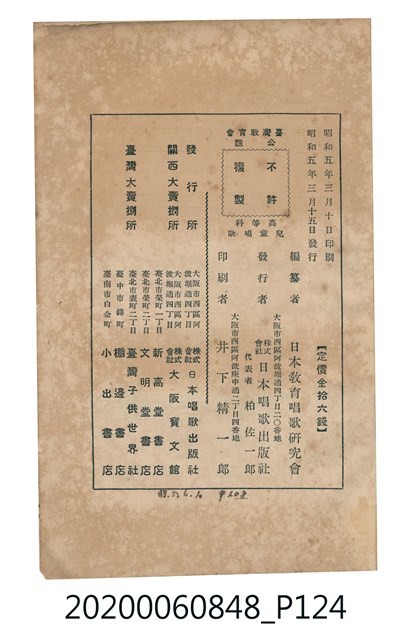 昭和五年三月十日印刷
昭和五年三月十五日發行
【定價金拾六錢】
臺灣教育會
公認
不許
複製
高等科
兒童唱歌
編纂者
大阪市西區阿波堀通四丁目二〇番地
日本教育唱歌研究會
發行者
株式會社 日本唱歌出版社
代表者 柏佐一郎
印刷者
大阪市西區阿波座中通二丁目四番地
井下精一郎
發行所
大阪市西區阿波堀通四丁目
株式會社 日本唱歌出版社
關西大賣捌所
大阪市西區阿波堀通四丁目
株式會社 大阪寶文館
臺灣大賣捌所
臺北市榮町一丁目
新高堂書店
臺北市榮町二丁目
文明堂書店
臺北市表町二丁目
臺灣子供世界社
臺中市錦町
棚邊書店
臺南市白金町
小出書店
20200060848_P124